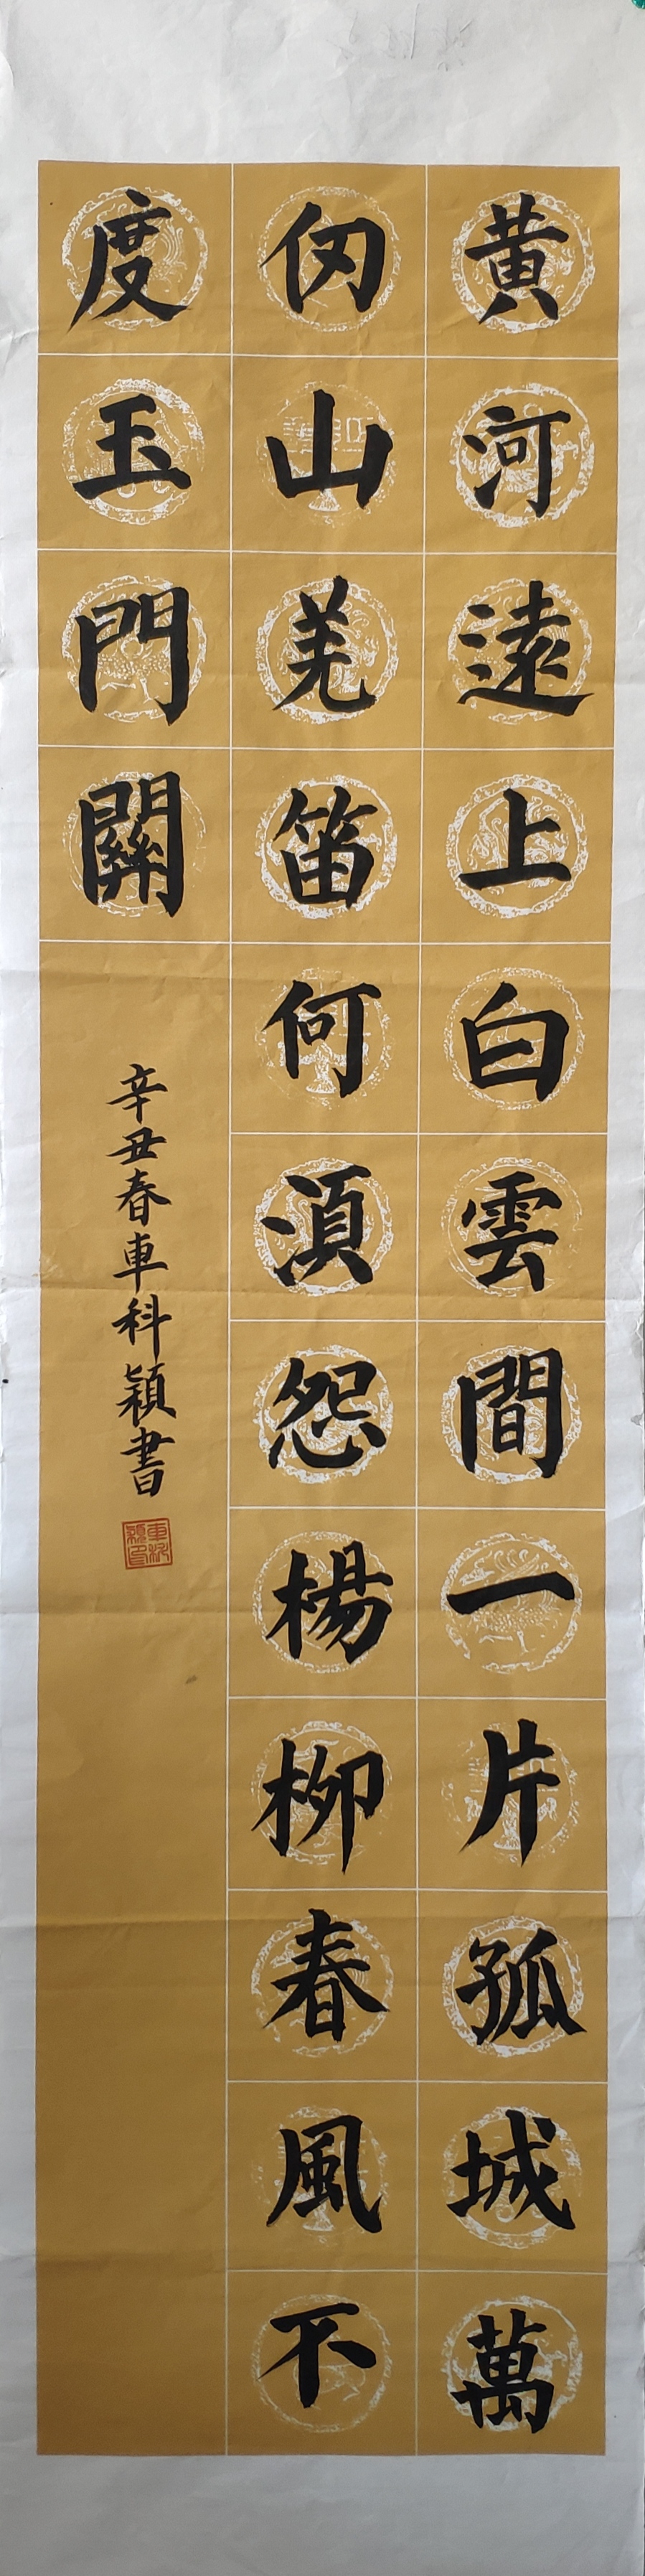 黄河遠上白雲間一片孤城萬
仞山羌笛何湏怨楊柳春風不
度玉門關
辛丑春車科穎書